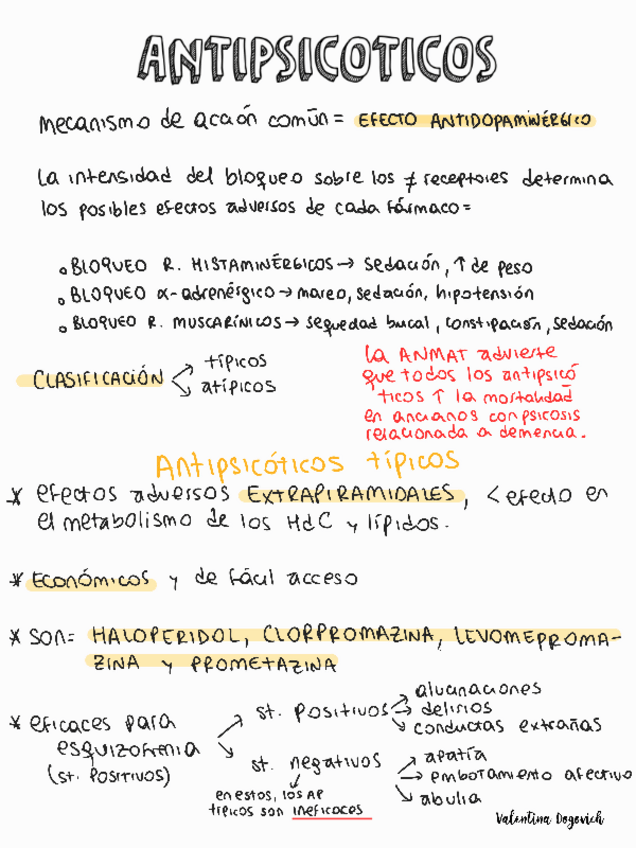 ANTIPSICOTICOS
mecanismo de acción común = EFECTO ANTIDOPAMINÉRGICO
La intensidad del bloqueo sobre los ≠ receptores determina
los posibles efectos adversos de cada fármaco =
• BLOQUEO R. HISTAMINÉRGICOS → sedación, ↑ de peso
• BLOQUEO α-adrenérgico → mareo, sedación, hipotensión
• BLOQUEO R. MUSCARÍNICOS → sequedad bucal, constipación, sedación
CLASIFICACIÓN
típicos
atípicos
La ANMAT advierte
que todos los antipsicó
ticos ↑ la mortalidad
en ancianos con psicosis
relacionada a demencia.
ANTIPSICÓTICOS típicos
* efectos adversos EXTRAPIRAMIDALES, < efecto en
el metabolismo de los HdC y lípidos.
* ECONÓMICOS y de fácil acceso
* SON = HALOPERIDOL, CLORPROMAZINA, LEVOMEPROMA-
ZINA y PROMETAZINA
* eficaces para
esquizofrenia
(st. POSITIVOS)
st. POSITIVOS
alucinaciones
delirios
conductas extrañas
st. negativos
apatía
embotamiento afectivo
abulia
en estos, los AP
típicos son ineficaces
Valentina Dogovich